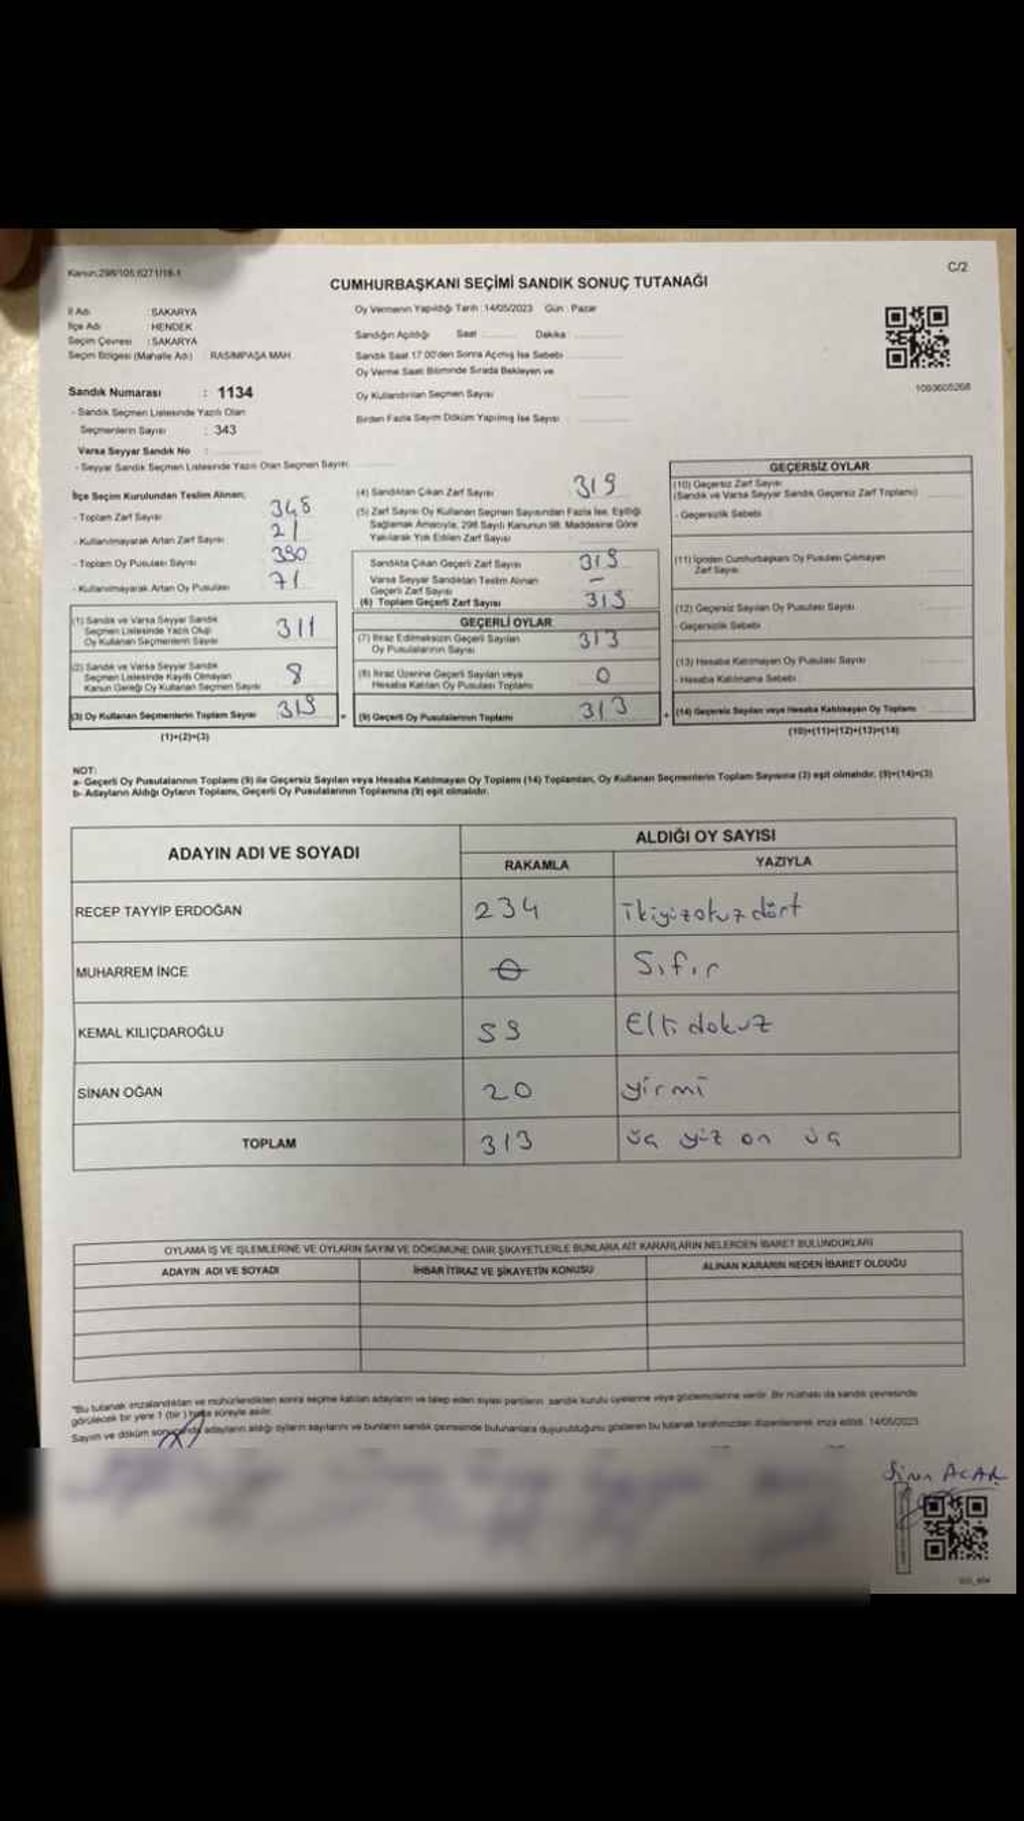 Kanun:298/105,6271/18-1
C/2
CUMHURBAŞKANI SEÇİMİ SANDIK SONUÇ TUTANAĞI
İl Adı : SAKARYA
İlçe Adı : HENDEK
Seçim Çevresi : SAKARYA
Seçim Bölgesi (Mahalle Adı) : RASİMPAŞA MAH.
Sandık Numarası : 1134
- Sandık Seçmen Listesinde Yazılı Olan
Seçmenlerin Sayısı : 343
Varsa Seyyar Sandık No :
- Seyyar Sandık Seçmen Listesinde Yazılı Olan Seçmen Sayısı
Oy Vermenin Yapıldığı Tarih :14/05/2023 Gün : Pazar
Sandığın Açıldığı Saat Dakika
Sandık Saat 17.00'den Sonra Açılmış İse Sebebi
Oy Verme Saati Bitiminde Sırada Bekleyen ve
Oy Kullandırılan Seçmen Sayısı
Birden Fazla Sayım Döküm Yapılmış İse Sayısı
1093605268
İlçe Seçim Kurulundan Teslim Alınan;
- Toplam Zarf Sayısı
- Kullanılmayarak Artan Zarf Sayısı 21
- Toplam Oy Pusulası Sayısı
- Kullanılmayarak Artan Oy Pusulası 71
(1) Sandık ve Varsa Seyyar Sandık
Seçmen Listesinde Yazılı Olup
Oy Kullanan Seçmenlerin Sayısı 311
(2) Sandık ve Varsa Seyyar Sandık
Seçmen Listesinde Kayıtlı Olmayan
Kanun Gereği Oy Kullanan Seçmen Sayısı 8
(3) Oy Kullanan Seçmenlerin Toplam Sayısı 319
(1)+(2)=(3)
(4) Sandıktan Çıkan Zarf Sayısı 319
(5) Zarf Sayısı Oy Kullanan Seçmen Sayısından Fazla İse, Eşitliği
Sağlamak Amacıyla, 298 Sayılı Kanunun 98. Maddesine Göre
Yakılarak Yok Edilen Zarf Sayısı
Sandıkta Çıkan Geçerli Zarf Sayısı
Varsa Seyyar Sandıktan Teslim Alınan
Geçerli Zarf Sayısı –
(6) Toplam Geçerli Zarf Sayısı
GEÇERLİ OYLAR
(7) İtiraz Edilmeksizin Geçerli Sayılan
Oy Pusulalarının Sayısı 313
(8) İtiraz Üzerine Geçerli Sayılan veya
Hesaba Katılan Oy Pusulası Toplamı 0
= (9) Geçerli Oy Pusulalarının Toplamı 313
GEÇERSİZ OYLAR
(10) Geçersiz Zarf Sayısı
(Sandık ve Varsa Seyyar Sandık Geçersiz Zarf Toplamı)
- Geçersizlik Sebebi
(11) İçinden Cumhurbaşkanı Oy Pusulası Çıkmayan
Zarf Sayısı
(12) Geçersiz Sayılan Oy Pusulası Sayısı
- Geçersizlik Sebebi
(13) Hesaba Katılmayan Oy Pusulası Sayısı
- Hesaba Katılmama Sebebi
+ (14) Geçersiz Sayılan veya Hesaba Katılmayan Oy Toplamı
(10)+(11)+(12)+(13)=(14)
NOT:
a- Geçerli Oy Pusulalarının Toplamı (9) ile Geçersiz Sayılan veya Hesaba Katılmayan Oy Toplamı (14) Toplamları, Oy Kullanan Seçmenlerin Toplam Sayısına (3) eşit olmalıdır. (9)+(14)=(3)
b- Adayların Aldığı Oyların Toplamı, Geçerli Oy Pusulalarının Toplamına (9) eşit olmalıdır.
ADAYIN ADI VE SOYADI
ALDIĞI OY SAYISI
RAKAMLA YAZIYLA
RECEP TAYYİP ERDOĞAN 234 ikiyüzotuzdört
MUHARREM İNCE 0 Sıfır
KEMAL KILIÇDAROĞLU 59 Elli dokuz
SİNAN OĞAN 20 yirmi
TOPLAM 313 üç yüz on üç
OYLAMA İŞ VE İŞLEMLERİNE VE OYLARIN SAYIM VE DÖKÜMÜNE DAİR ŞİKAYETLERLE BUNLARA AİT KARARLARIN NELERDEN İBARET BULUNDUKLARI
ADAYIN ADI VE SOYADI İHBAR İTİRAZ VE ŞİKAYETİN KONUSU ALINAN KARARIN NEDEN İBARET OLDUĞU
"Bu tutanak imzalandıktan ve mühürlendikten sonra seçime katılan adayların ve talep eden siyasi partilerin sandık kurulu üyelerine veya gözlemcilerine verilir. Bir nüshası da sandık çevresinde
görülecek bir yere 1 (bir) hafta süreyle asılır.
Sayım ve döküm sonucunda adayların aldığı oyların sayılarını ve bunların sandık çevresinde bulunanlara duyurulduğunu gösteren bu tutanak tarafımızdan düzenlenerek imza edildi. 14/05/2023
Sinan ACAR